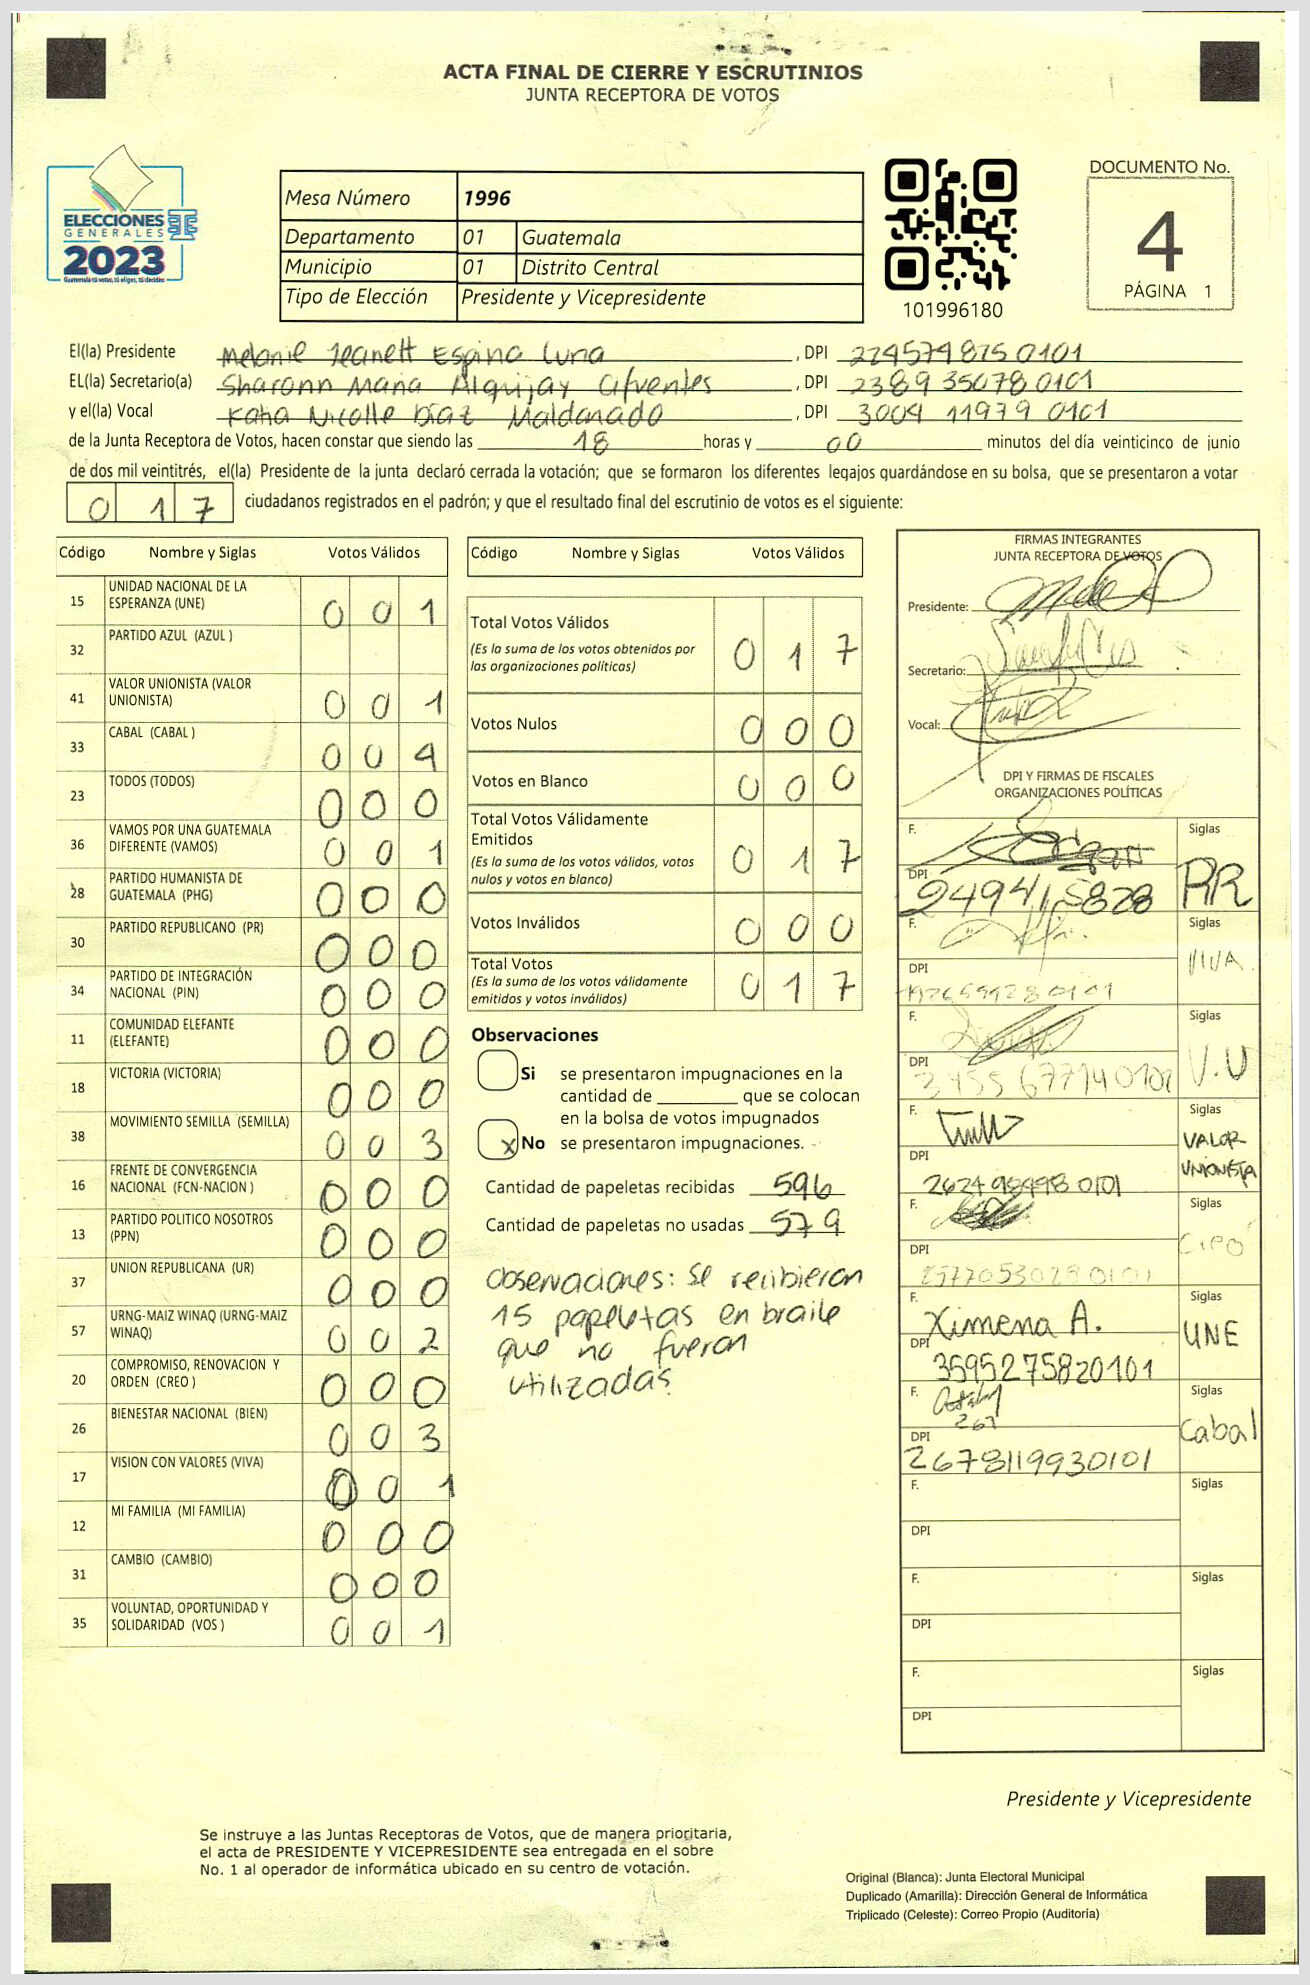 ACTA FINAL DE CIERRE Y ESCRUTINIOS
JUNTA RECEPTORA DE VOTOS
ELECCIONES
GENERALES
2023
Guatemala tú votas, tú eliges, tú decides
Mesa Número 1996
Departamento 01 Guatemala
Municipio 01 Distrito Central
Tipo de Elección Presidente y Vicepresidente
101996180
DOCUMENTO No.
4
PÁGINA 1
El(la) Presidente Melanie Jeanett Espina Luna , DPI 224574875 0101
EL(la) Secretario(a) Sharonn Maria Alquijay Cifuentes , DPI 2389 35078 0101
y el(la) Vocal Katia Nicolle Díaz Maldonado , DPI 3004 11979 0101
de la Junta Receptora de Votos, hacen constar que siendo las 18 horas y 00 minutos del día veinticinco de junio
de dos mil veintitrés, el(la) Presidente de la junta declaró cerrada la votación; que se formaron los diferentes legajos quardándose en su bolsa, que se presentaron a votar
0 1 7 ciudadanos registrados en el padrón; y que el resultado final del escrutinio de votos es el siguiente:
Código Nombre y Siglas Votos Válidos
15 UNIDAD NACIONAL DE LA ESPERANZA (UNE) 0 0 1
32 PARTIDO AZUL (AZUL )
41 VALOR UNIONISTA (VALOR UNIONISTA) 0 0 1
33 CABAL (CABAL ) 0 0 4
23 TODOS (TODOS) 0 0 0
36 VAMOS POR UNA GUATEMALA DIFERENTE (VAMOS) 0 0 1
28 PARTIDO HUMANISTA DE GUATEMALA (PHG) 0 0 0
30 PARTIDO REPUBLICANO (PR) 0 0 0
34 PARTIDO DE INTEGRACIÓN NACIONAL (PIN) 0 0 0
11 COMUNIDAD ELEFANTE (ELEFANTE) 0 0 0
18 VICTORIA (VICTORIA) 0 0 0
38 MOVIMIENTO SEMILLA (SEMILLA) 0 0 3
16 FRENTE DE CONVERGENCIA NACIONAL (FCN-NACION ) 0 0 0
13 PARTIDO POLITICO NOSOTROS (PPN) 0 0 0
37 UNION REPUBLICANA (UR) 0 0 0
57 URNG-MAIZ WINAQ (URNG-MAIZ WINAQ) 0 0 2
20 COMPROMISO, RENOVACION Y ORDEN (CREO ) 0 0 0
26 BIENESTAR NACIONAL (BIEN) 0 0 3
17 VISION CON VALORES (VIVA) 0 0 1
12 MI FAMILIA (MI FAMILIA) 0 0 0
31 CAMBIO (CAMBIO) 0 0 0
35 VOLUNTAD, OPORTUNIDAD Y SOLIDARIDAD (VOS ) 0 0 1
Código Nombre y Siglas Votos Válidos
Total Votos Válidos 0 1 7
(Es la suma de los votos obtenidos por
las organizaciones políticas)
Votos Nulos 0 0 0
Votos en Blanco 0 0 0
Total Votos Válidamente
Emitidos 0 1 7
(Es la suma de los votos válidos, votos
nulos y votos en blanco)
Votos Inválidos 0 0 0
Total Votos 0 1 7
(Es la suma de los votos válidamente
emitidos y votos inválidos)
Observaciones
Si se presentaron impugnaciones en la
cantidad de ________ que se colocan
en la bolsa de votos impugnados
x No se presentaron impugnaciones.
Cantidad de papeletas recibidas 596
Cantidad de papeletas no usadas 579
observaciones: se recibieron
15 papeletas en braile
que no fueron
utilizadas.
FIRMAS INTEGRANTES
JUNTA RECEPTORA DE VOTOS
Presidente:
Secretario:
Vocal:
DPI Y FIRMAS DE FISCALES
ORGANIZACIONES POLÍTICAS
F. Siglas
DPI 249415828 PR
F. Siglas
DPI VIVA
F. Siglas
DPI 3455 67714 0101 V.U
F. Siglas
DPI 2624 98498 0101 VALOR UNIONISTA
F. Siglas
DPI
F. Ximena A. Siglas
DPI 3595275820101 UNE
F. Siglas
DPI 2678119930101 Cabal
F. Siglas
DPI
F. Siglas
DPI
F. Siglas
DPI
Presidente y Vicepresidente
Se instruye a las Juntas Receptoras de Votos, que de manera prioritaria,
el acta de PRESIDENTE Y VICEPRESIDENTE sea entregada en el sobre
No. 1 al operador de informática ubicado en su centro de votación.
Original (Blanca): Junta Electoral Municipal
Duplicado (Amarilla): Dirección General de Informática
Triplicado (Celeste): Correo Propio (Auditoría)